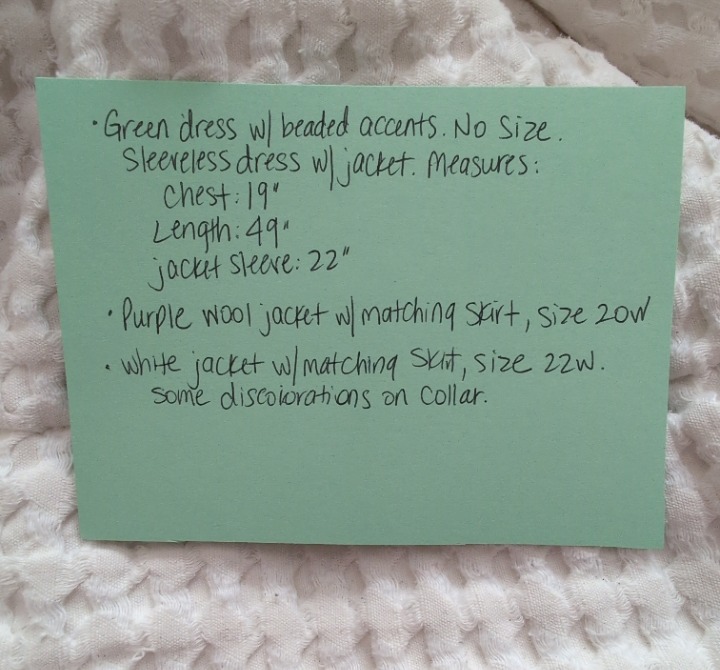 • Green dress w/ beaded accents. No Size.
Sleeveless dress w/ jacket. Measures:
Chest: 19"
Length: 49"
jacket sleeve: 22"
• Purple wool jacket w/ matching skirt, size 20W
• White jacket w/ matching skirt, size 22W.
Some discolorations on collar.